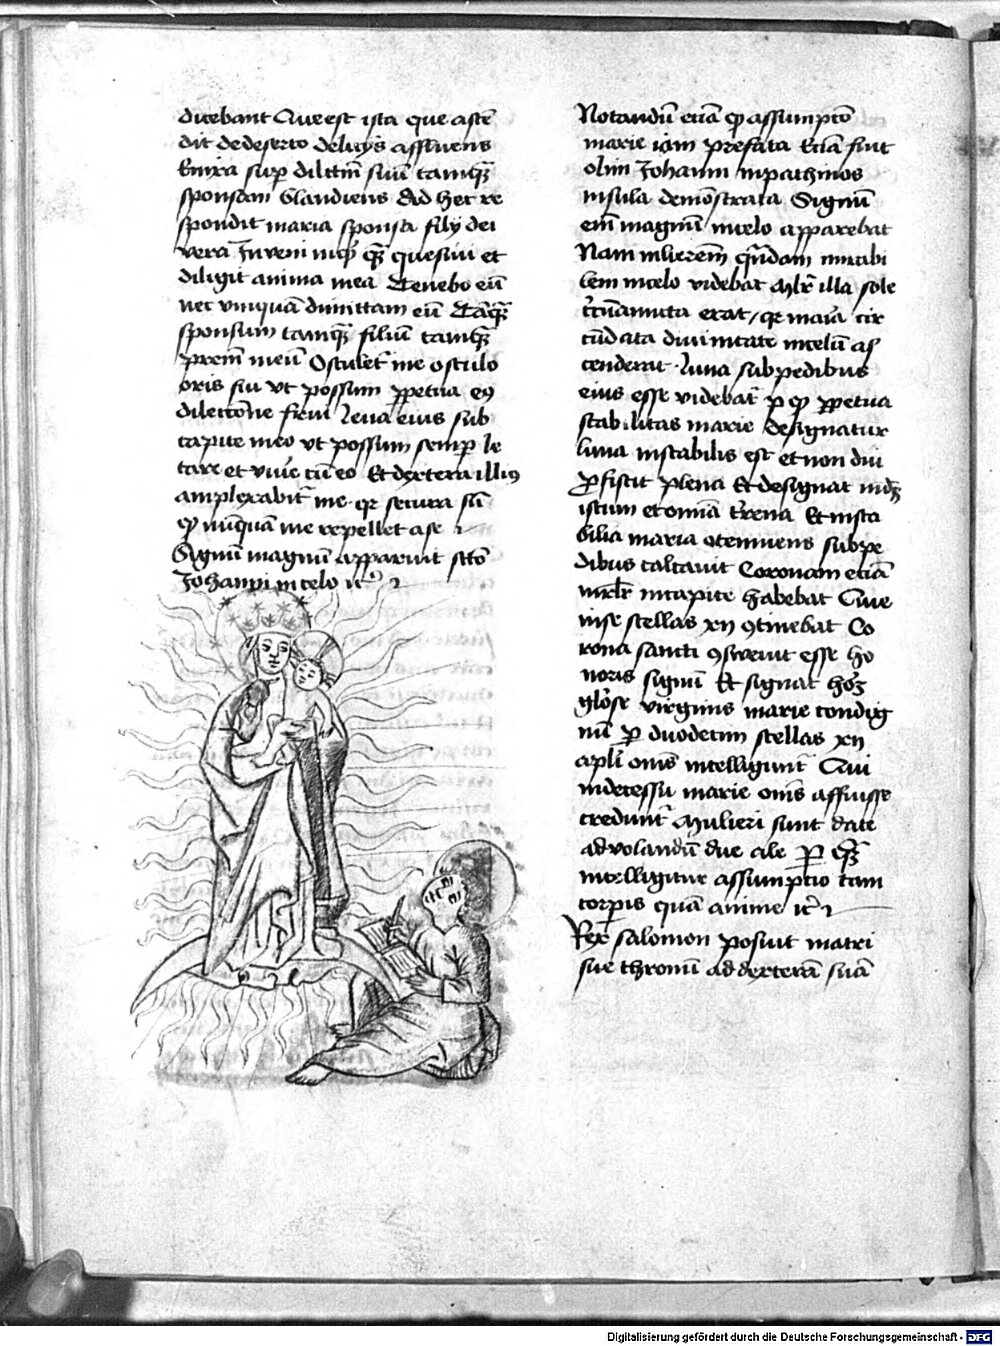 dicebant Que est ista que ascē
dit de deserto delicijs affluens
Enixa sup dilectū suū tamq̄
sponsam blandiens Ad hec re
spondit maria sponsa filij dei
vera Inveni inq̄ quē quesivi et
diligit anima mea Tenebo eū
nec vnquā dimittam eū Tāq̄
sponsum tamq̄ filiū tamq̄
prem̄ meū Osculet̄ me osculo
oris sui vt possum ppetua eꝯ
dilectōne frui Leua eius sub
capite meo vt possum semp le
tare et viuē cū eo Et dextera illiꝯ
amplexabit̄ me qr secura sū
qꝫ nūquā me repellet a se
Signū magnū apparuit scō
Johanni in celo ꝛc̄
Notandū eciā qꝫ assumpcō
marie iam prefata Eciā fuit
olim Johanni in pathmos
insula demōstrata Signū
em̄ magnū in celo apparebat
Nam mulierem̄ quādam mirabi
lem in celo videbat Mlr̄ illa sole
circūamicta erat / qr maria cir
cūdata diuinitate in celū as
cenderat Luna sub pedibus
eius esse videbat̄ p qꝫ ppetua
stabilitas marie designatur
luna instabilis est et non diu
pfistit plena Et designat mūdū
istum et omīa trrena Et insta
bilia maria ꝯtemnens sub pe
dibus calcauit Coronam eciā
mulr̄ in capite habebat Que
in se stellas xij ꝯtinebat Co
rona sancti ꝯsueuit esse ho
noris signū Et signat hoꝫ
gloōse virginis marie condig
nū p duodecim stellas xij
apli om̄s intelligunt̄ Qui
in decessu marie om̄s affuisse
credunt̄ Mulieri sunt date
ad volandū due ale p qꝫ
intelligitur assumptio tam
corpis quā anime ꝛc̄
Rex salomon posuit matri
sue thronū ad dexterā suā
Digitalisierung gefördert durch die Deutsche Forschungsgemeinschaft - DFG